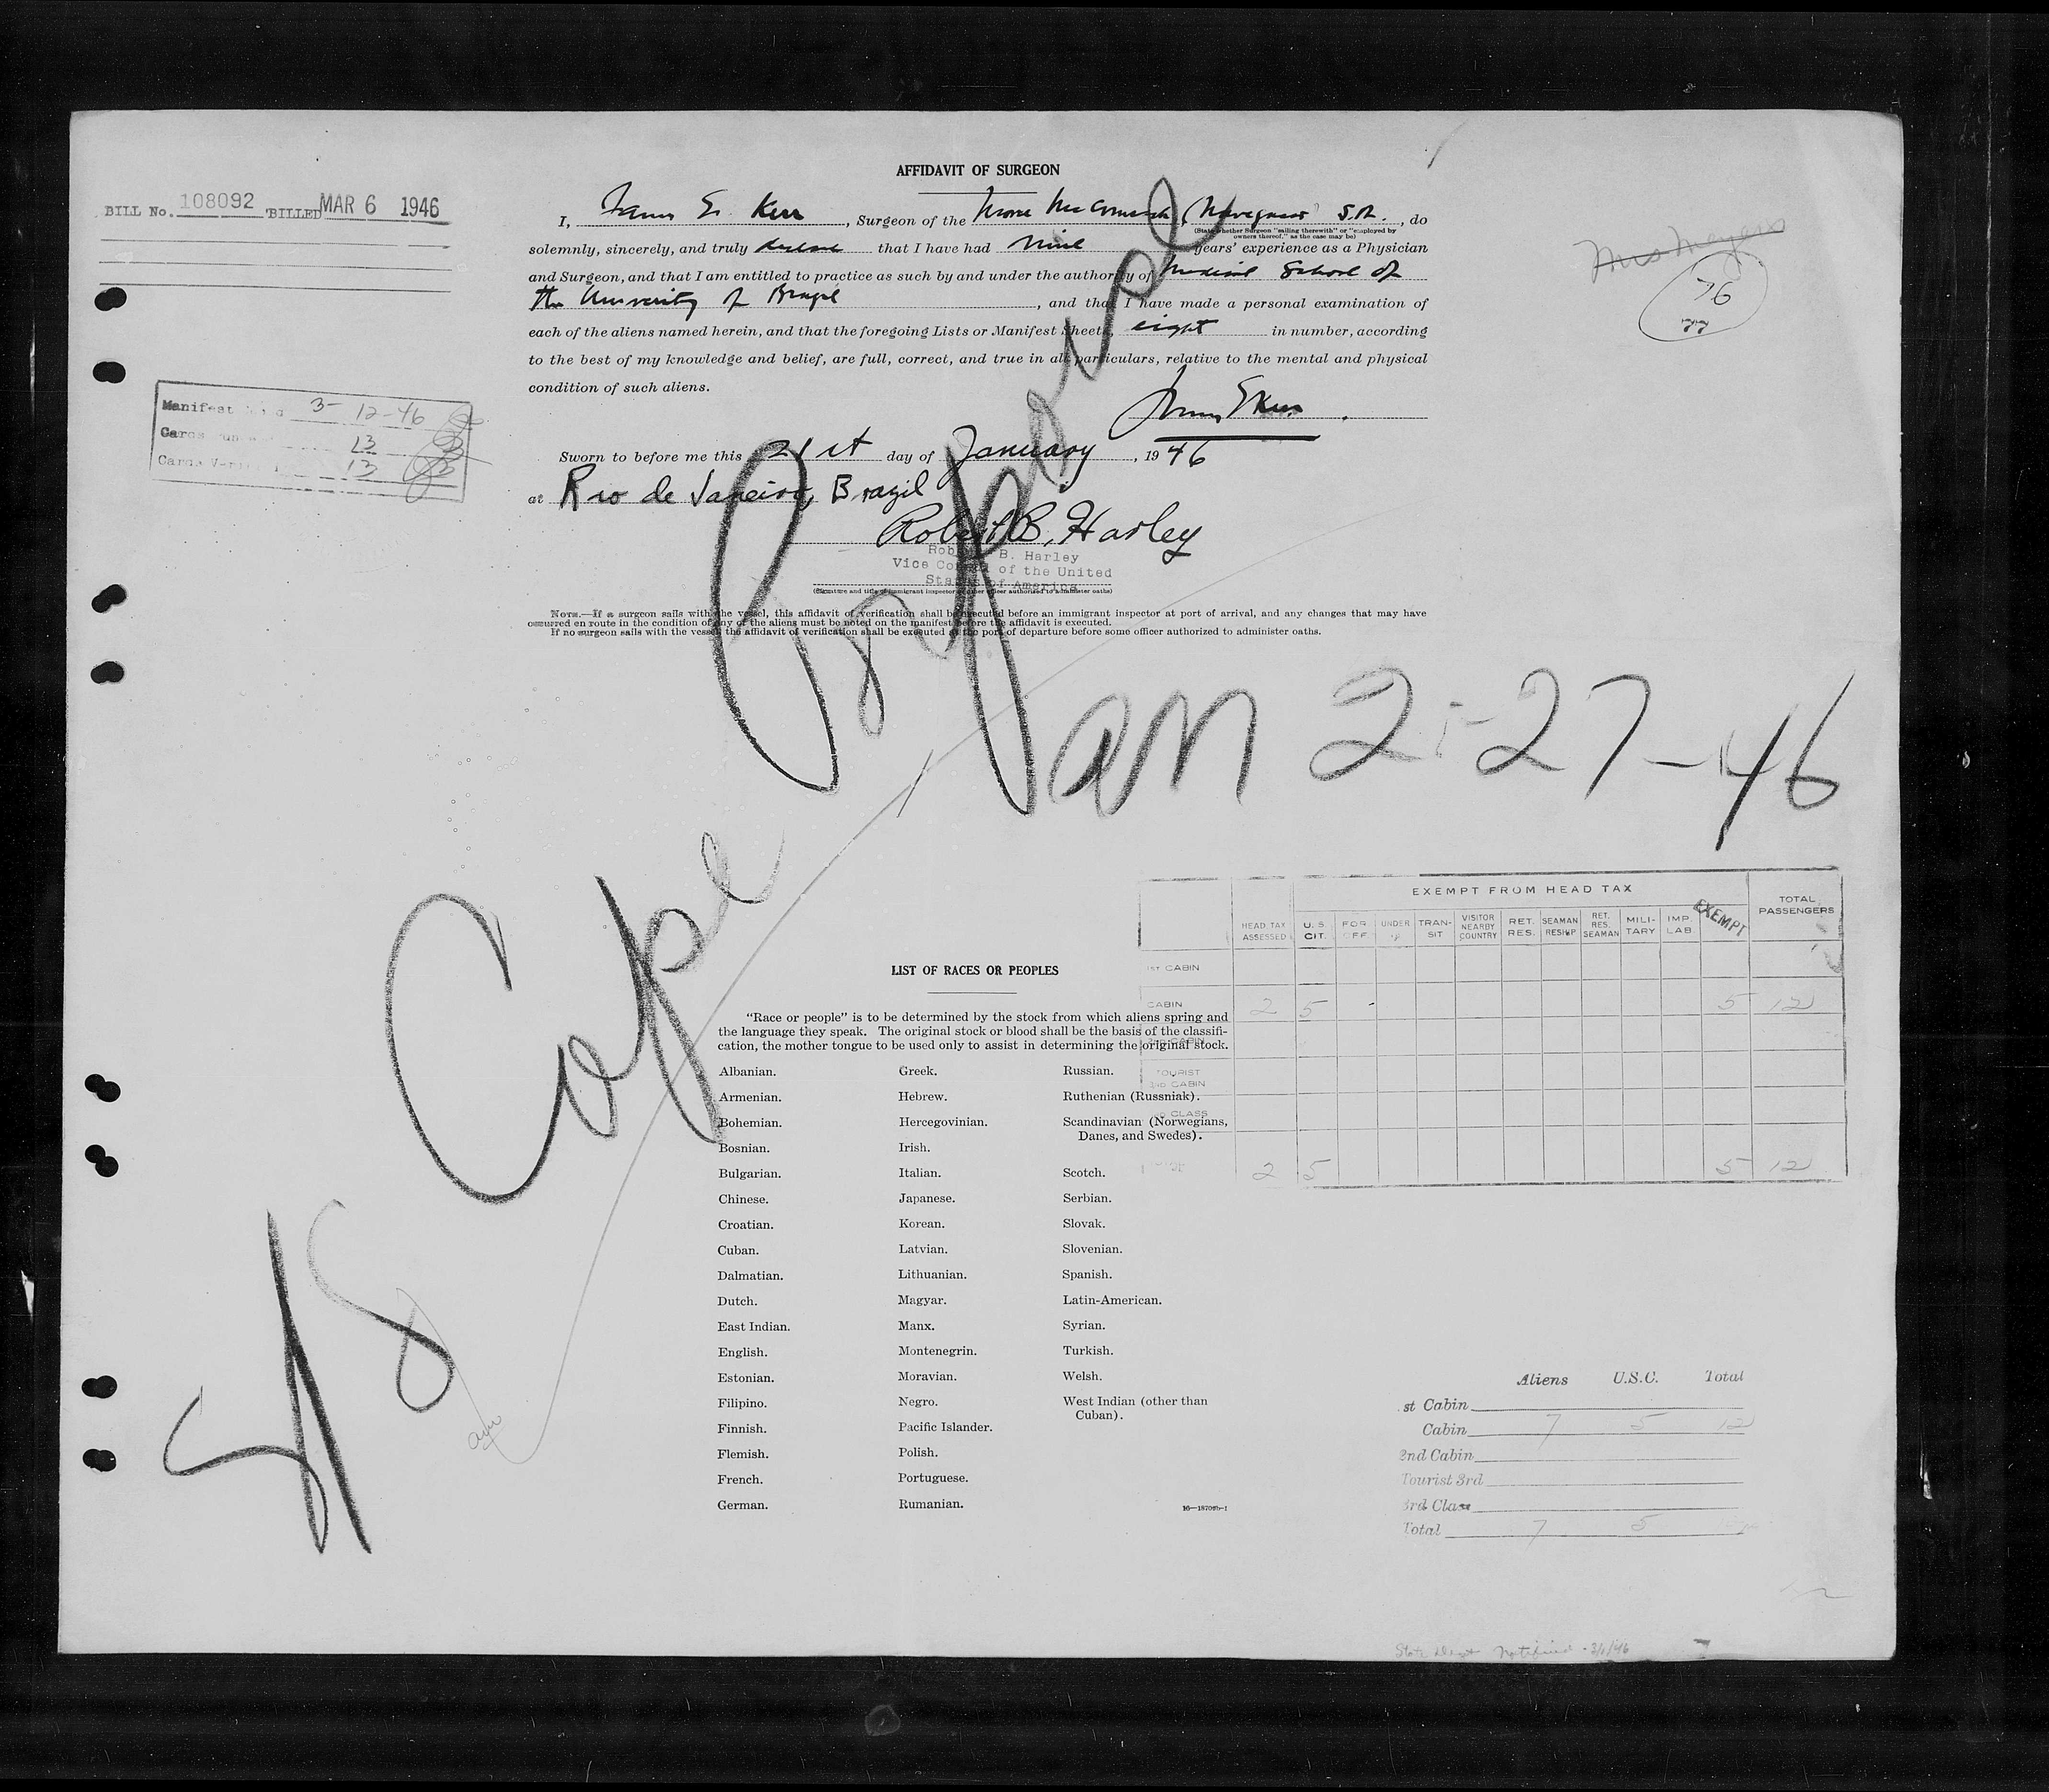 AFFIDAVIT OF SURGEON
BILL No. 108092 BILLED MAR 6 1946
I, James E. Kerr, Surgeon of the Moore McCormack (Navegacao) S.A., do
(State whether Surgeon "sailing therewith" or "employed by owners thereof," as the case may be)
solemnly, sincerely, and truly declare that I have had nine years' experience as a Physician
and Surgeon, and that I am entitled to practice as such by and under the authority of Medical School of
the University of Brazil, and that I have made a personal examination of
each of the aliens named herein, and that the foregoing Lists or Manifest Sheets, eight in number, according
to the best of my knowledge and belief, are full, correct, and true in all particulars, relative to the mental and physical
condition of such aliens.
James E Kerr
76
77
Manifest 3-12-46
Cards 13
Cards 13
Sworn to before me this 21st day of January, 1946
at Rio de Janeiro, Brazil
Robert B. Harley
Robert B. Harley
Vice Consul of the United
States of America
(Signature and title of immigrant inspector or other officer authorized to administer oaths)
NOTE.—If a surgeon sails with the vessel, this affidavit of verification shall be executed before an immigrant inspector at port of arrival, and any changes that may have
occurred en route in the condition of any of the aliens must be noted on the manifest before the affidavit is executed.
If no surgeon sails with the vessel, the affidavit of verification shall be executed at the port of departure before some officer authorized to administer oaths.
am 2-27-46
SS Cape
EXEMPT FROM HEAD TAX
HEAD TAX ASSESSED
U. S. CIT.
FOR. OFF.
UNDER
TRANSIT
VISITOR NEARBY COUNTRY
RET. RES.
SEAMAN RESHIP
RET. RES. SEAMAN
MILITARY
IMP. LAB.
EXEMPT
TOTAL PASSENGERS
1ST CABIN
CABIN 2 5 5 12
2ND CABIN
TOURIST
3RD CABIN
CLASS
2 5 5 12
LIST OF RACES OR PEOPLES
"Race or people" is to be determined by the stock from which aliens spring and
the language they speak. The original stock or blood shall be the basis of the classifi-
cation, the mother tongue to be used only to assist in determining the original stock.
Albanian. Greek. Russian.
Armenian. Hebrew. Ruthenian (Russniak).
Bohemian. Hercegovinian. Scandinavian (Norwegians,
Danes, and Swedes).
Bosnian. Irish.
Bulgarian. Italian. Scotch.
Chinese. Japanese. Serbian.
Croatian. Korean. Slovak.
Cuban. Latvian. Slovenian.
Dalmatian. Lithuanian. Spanish.
Dutch. Magyar. Latin-American.
East Indian. Manx. Syrian.
English. Montenegrin. Turkish.
Estonian. Moravian. Welsh.
Filipino. Negro. West Indian (other than
Cuban).
Finnish. Pacific Islander.
Flemish. Polish.
French. Portuguese.
German. Rumanian.
Aliens U.S.C. Total
st Cabin
Cabin 7 5 12
2nd Cabin
Tourist 3rd
3rd Class
Total 7 5
State Dept Notified - 3/1/46